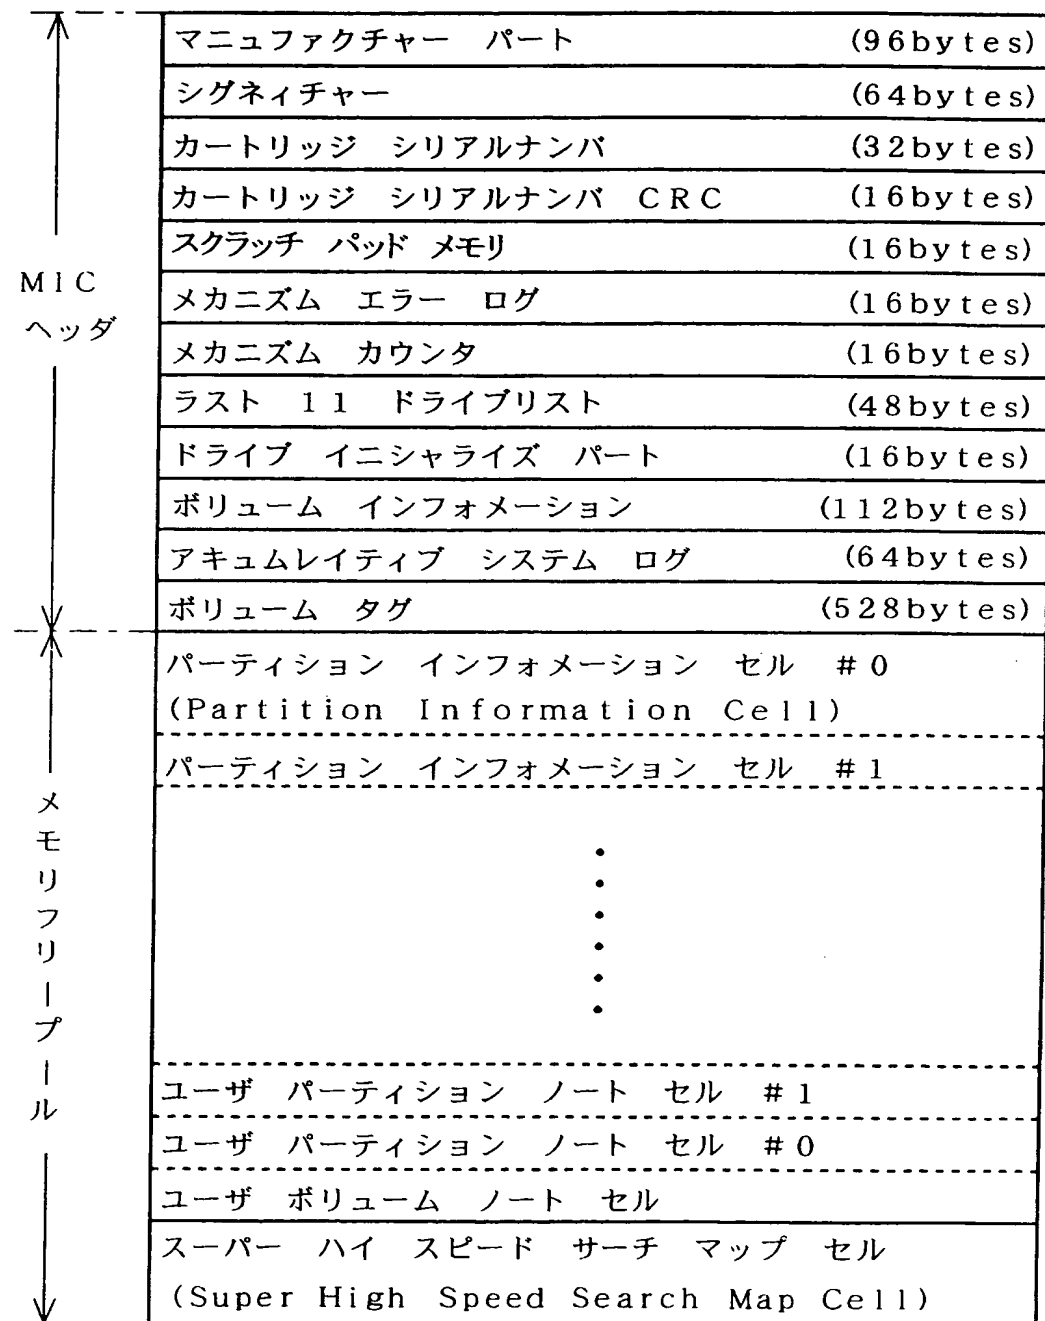 マニュファクチャー パート (96bytes)
シグネィチャー (64bytes)
カートリッジ シリアルナンバ (32bytes)
カートリッジ シリアルナンバ CRC (16bytes)
スクラッチ パッド メモリ (16bytes)
MIC
ヘッダ
メカニズム エラー ログ (16bytes)
メカニズム カウンタ (16bytes)
ラスト 11 ドライブリスト (48bytes)
ドライブ イニシャライズ パート (16bytes)
ボリューム インフォメーション (112bytes)
アキュムレイティブ システム ログ (64bytes)
ボリューム タグ (528bytes)
パーティション インフォメーション セル #0
(Partition Information Cell)
パーティション インフォメーション セル #1
メモリフリープール
ユーザ パーティション ノート セル #1
ユーザ パーティション ノート セル #0
ユーザ ボリューム ノート セル
スーパー ハイ スピード サーチ マップ セル
(Super High Speed Search Map Cell)